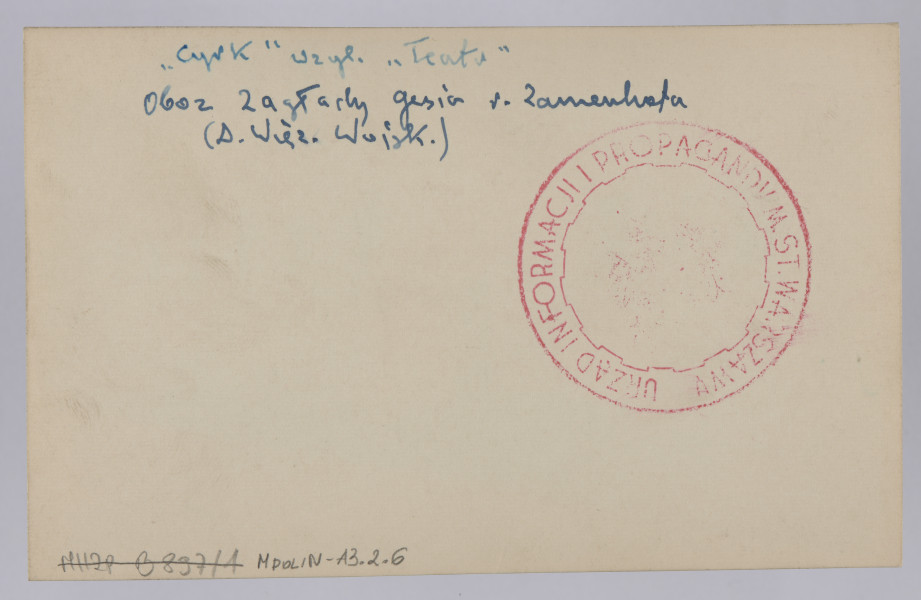 „Cyrk" wzgl. „Teatr"
Oboz Zagłady gesia r. Zamenhofa
(D. Więz. Wojsk.)
URZĄD INFORMACJI I PROPAGANDY M. ST. WARSZAWY
MHŻP B 897/1 MPOLIN-A3.2.6